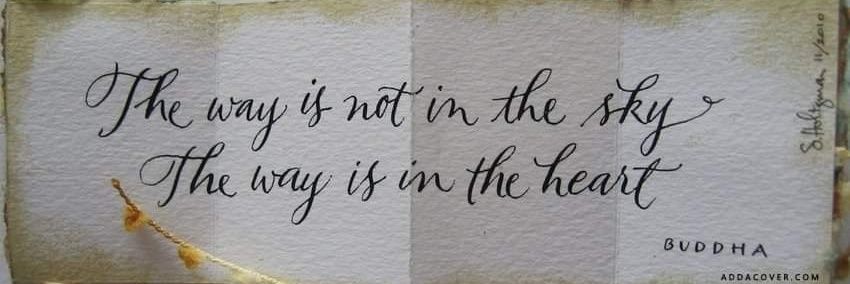 The way is not in the sky
The way is in the heart
BUDDHA
S. Holtzman 11/2010
ADDACOVER.COM